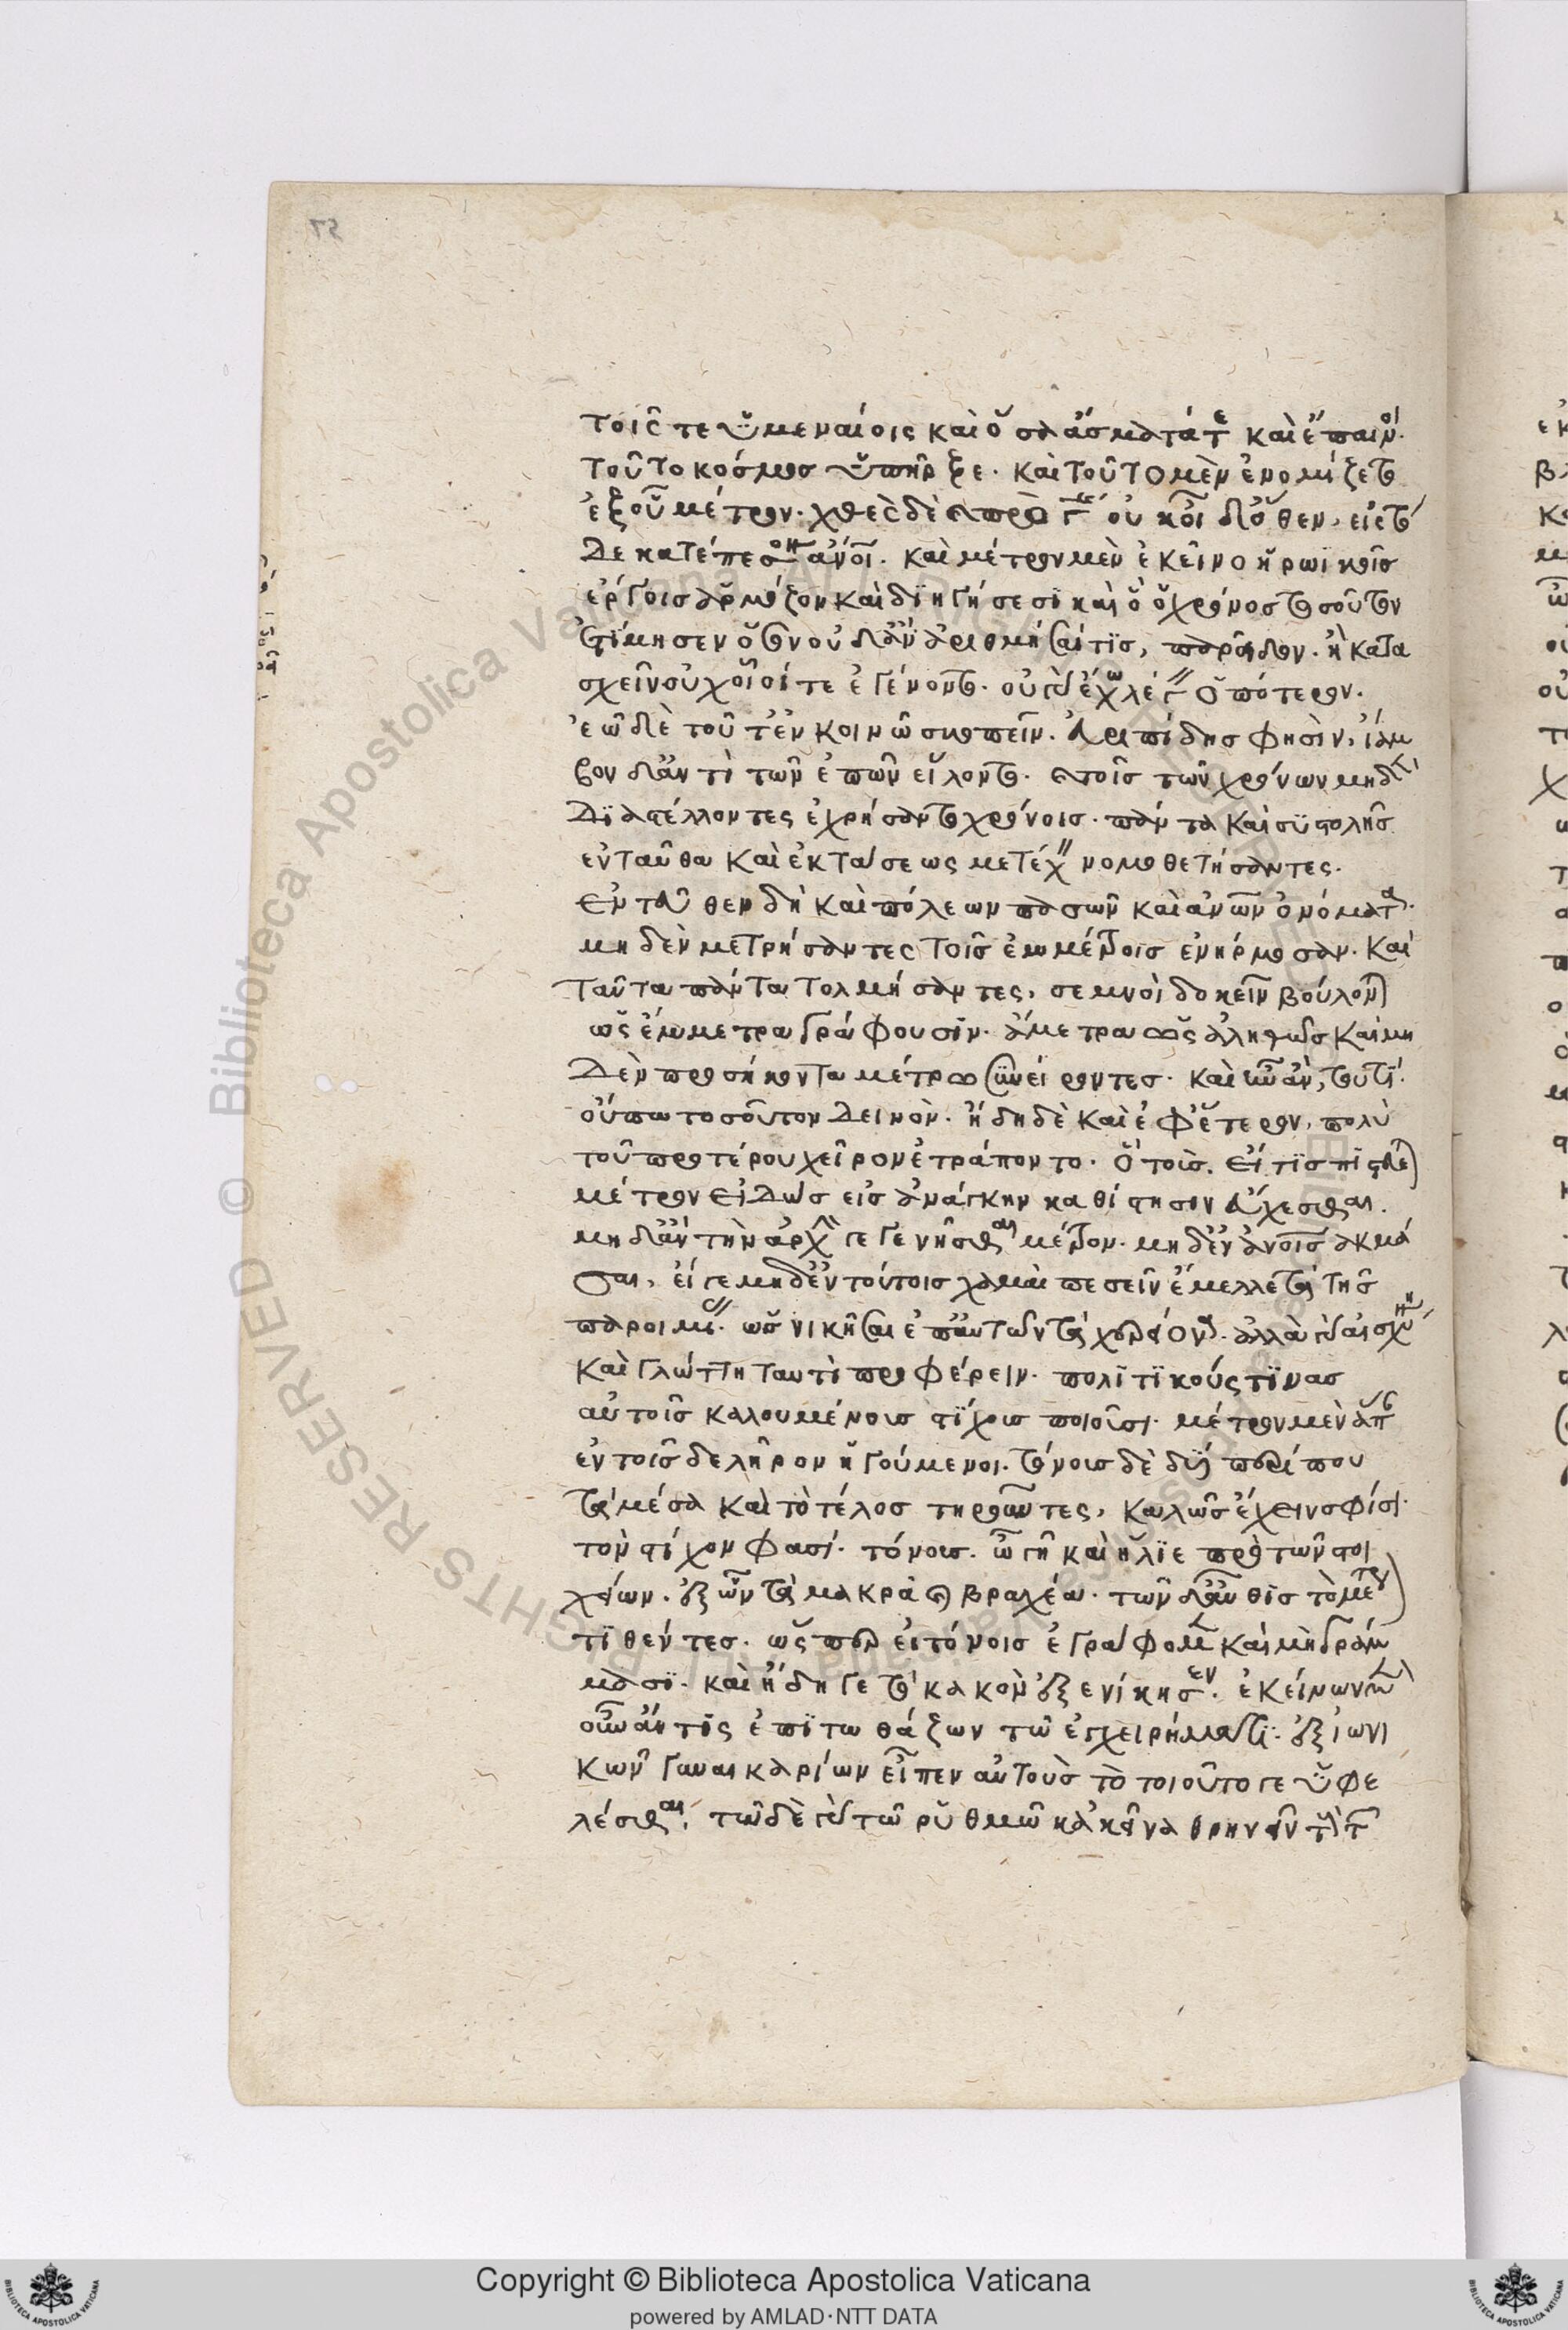 τοῖς τε ὑμεναίοις καὶ ὅσα ἄσματά τε καὶ ἔπαινοι.
τοῦτο κόσμος ὑπῆρξε. καὶ τοῦτο μὲν ἐνομίζετο
ἐξ οὗ μέτρον. χθὲς δὲ πρὸ οὐκ οἶδ' ὅθεν, εἰς τόδε
κατέπεσον ἄνοι. καὶ μέτρον μὲν ἐκεῖνο ἡρωϊκοῖς
ἔργοις ἁρμόζον καὶ διηγήσεσι καὶ ὃ ὁ χρόνος τοσοῦτον
ἐτίμησεν ὅσον οὐδ' ἂν ἀριθμήσαι τίς, παρεῖδον. ἢ κατα
σχεῖν οὐχ οἷοί τε ἐγένοντο. οὐ γὰρ ἔχω λέγειν ὁπότερον.
ἐῶ δὲ τοῦτ' ἐν κοινῷ σκοπεῖν. Εὐριπίδης φησὶν, ἴαμ
βον δ' ἀντὶ τῶν ἐπῶν εἵλοντο. τοῖς τῶν χρόνων μηδὲν
διαστέλλοντες ἐχρήσαντο χρόνοις. πάντα καὶ συστολῆς
ἐνταῦθα καὶ ἐκτάσεως μετέχειν νομοθετήσαντες.
ἐντεῦθεν δὴ καὶ πόλεων πασῶν καὶ ἀνων ὀνόματα.
μηδὲν μετρήσαντες τοῖς ἐμμέτροις ἐνήρμοσαν. καὶ
ταῦτα πάντα τολμήσαντες, σεμνοὶ δοκεῖν βούλονται
ὡς ἔμμετρα γράφουσιν. ἄμετρα ὡς ἀληθῶς καὶ μη
δὲν προσήκοντα μέτρω συνείροντες. καὶ τουτί.
οὔπω τοσοῦτον δεινὸν. ἤδη δὲ καὶ ἐφ' ἕτερον, πολὺ
τοῦ προτέρου χεῖρον ἐτράποντο. ὃ τοῖς. εἴ τις
μέτρον εἰδὼς εἰς ἀνάγκην καθίστησιν εὔχεσθαι.
μηδ' ἂν τὴν ἀρχὴν γεγενῆσθαι μέτρον. μηδ' ἐν ἀνοις ἀκμά
σαι, εἴ γε μηδ' ἐν τούτοις χαμαὶ πεσεῖν ἔμελλε τὰ τῆς
παροιμίας. ὡς νικῆσαι ἐπ' αὐτῶν τὰ χείρονα. ἀλλὰ γὰρ αἰσχύνη
καὶ γλώττη ταυτὶ προφέρειν. πολιτικούς τινας
αὐτοῖς καλουμένους στίχους ποιοῦσι. μέτρον μὲν ἅπαν
ἐν τοῖσδε λῆρον ἡγούμενοι. τόνοις δὲ δυσὶ περί που
τὰ μέσα καὶ τὸ τέλος τηροῦντες, καλῶς ἔχειν σφίσι.
τὸν στίχον φασί. τόνοις. ὦ γῆ καὶ ἥλιε πρὸ τῶν στοι
χείων. ἐξ ὧν τὰ μακρὰ καὶ βραχέα. τῶν δ' αὖθις τὸ μέτρον
τιθέντες. ὡς παρ εἰ τόνοις ἐγράφομεν καὶ μὴ γράμ
μασι. καὶ ἤδη γε τὸ κακὸν ἐξενίκησεν. ἐκείνων μὲν
οὖν ἄν τις ἐπιτωθάζων τῷ ἐγχειρήματι. ἐξ ἰωνι
κῶν γυναικαρίων εἶπεν αὐτοὺς τὸ τοιοῦτό γε ὑφε
λέσθαι, τῷδε γὰρ τῷ ῥυθμῷ κἀκεῖνα θρηνεῖν